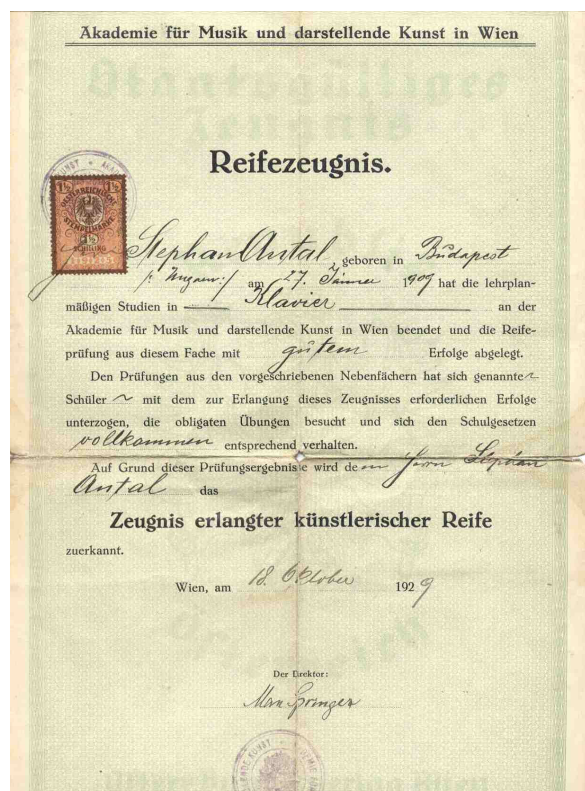 Akademie für Musik und darstellende Kunst in Wien
Staatsgültiges
Zeugnis
Reifezeugnis.
KUNST * AKA
1½ 1½
OESTERREICHISCHE
STEMPELMARKE
1½
SCHILLING
Stephan Antal, geboren in Budapest
/: Ungarn :/ am 27. Jänner 1909 hat die lehrplan-
mäßigen Studien in Klavier an der
Akademie für Musik und darstellende Kunst in Wien beendet und die Reife-
prüfung aus diesem Fache mit gutem Erfolge abgelegt.
Den Prüfungen aus den vorgeschriebenen Nebenfächern hat sich genannter
Schüler ~ mit dem zur Erlangung dieses Zeugnisses erforderlichen Erfolge
unterzogen, die obligaten Übungen besucht und sich den Schulgesetzen
vollkommen entsprechend verhalten.
Auf Grund dieser Prüfungsergebnisse wird dem Herrn Stephan
Antal das
Zeugnis erlangter künstlerischer Reife
zuerkannt.
Wien, am 18. Oktober 1929
Der Direktor:
Max Springer
KUNST